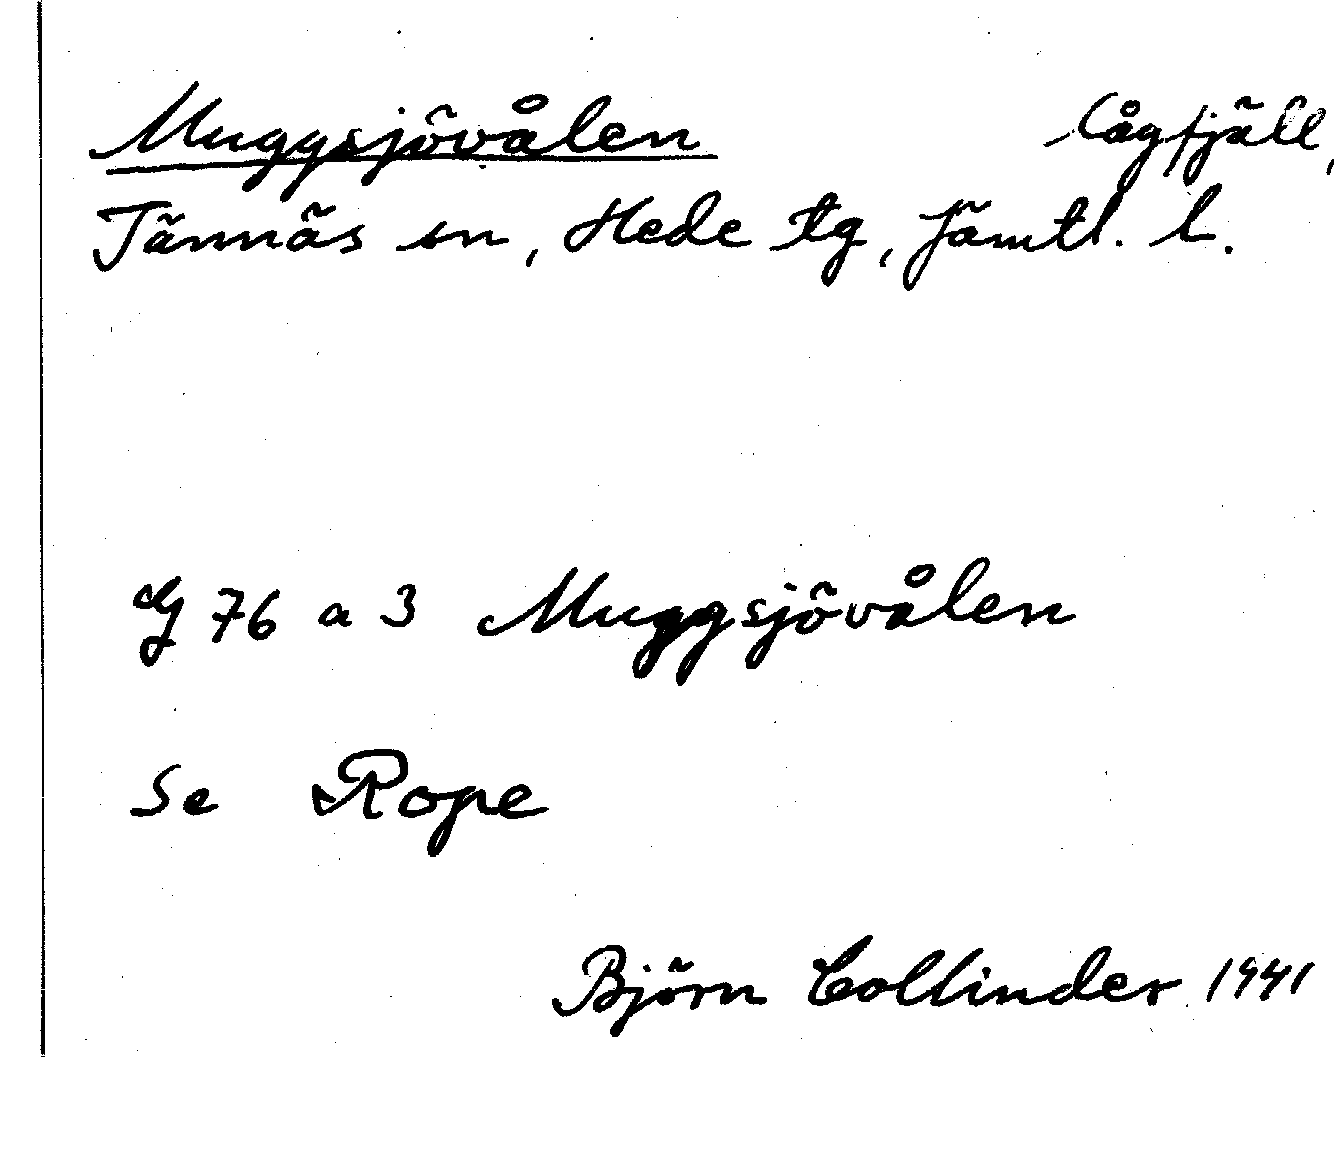 Muggsjövålen Lågfjäll,
Tännäs sn, Hede tg, Jämtl. l.
Lg 76 a 3 Muggsjövålen
Se Rope
Björn Collinder 1941